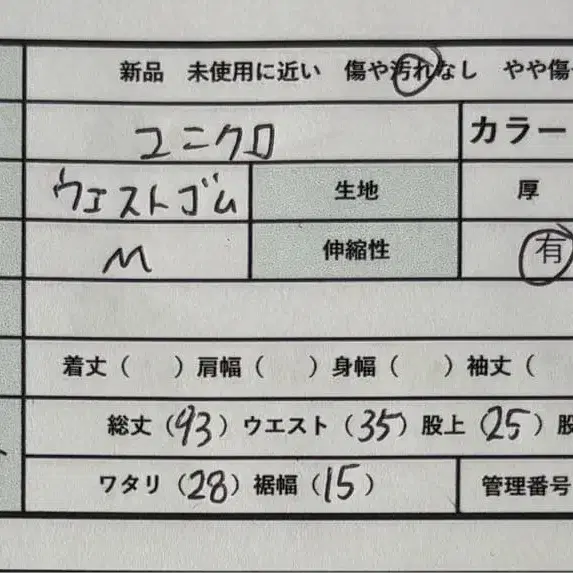 新品 未使用に近い 傷や汚れなし やや傷
ユニクロ カラー
ウエストゴム 生地 厚
M 伸縮性 有
着丈( )肩幅( )身幅( )袖丈(
総丈(93)ウエスト(35)股上(25)股
ワタリ(28)裾幅(15) 管理番号